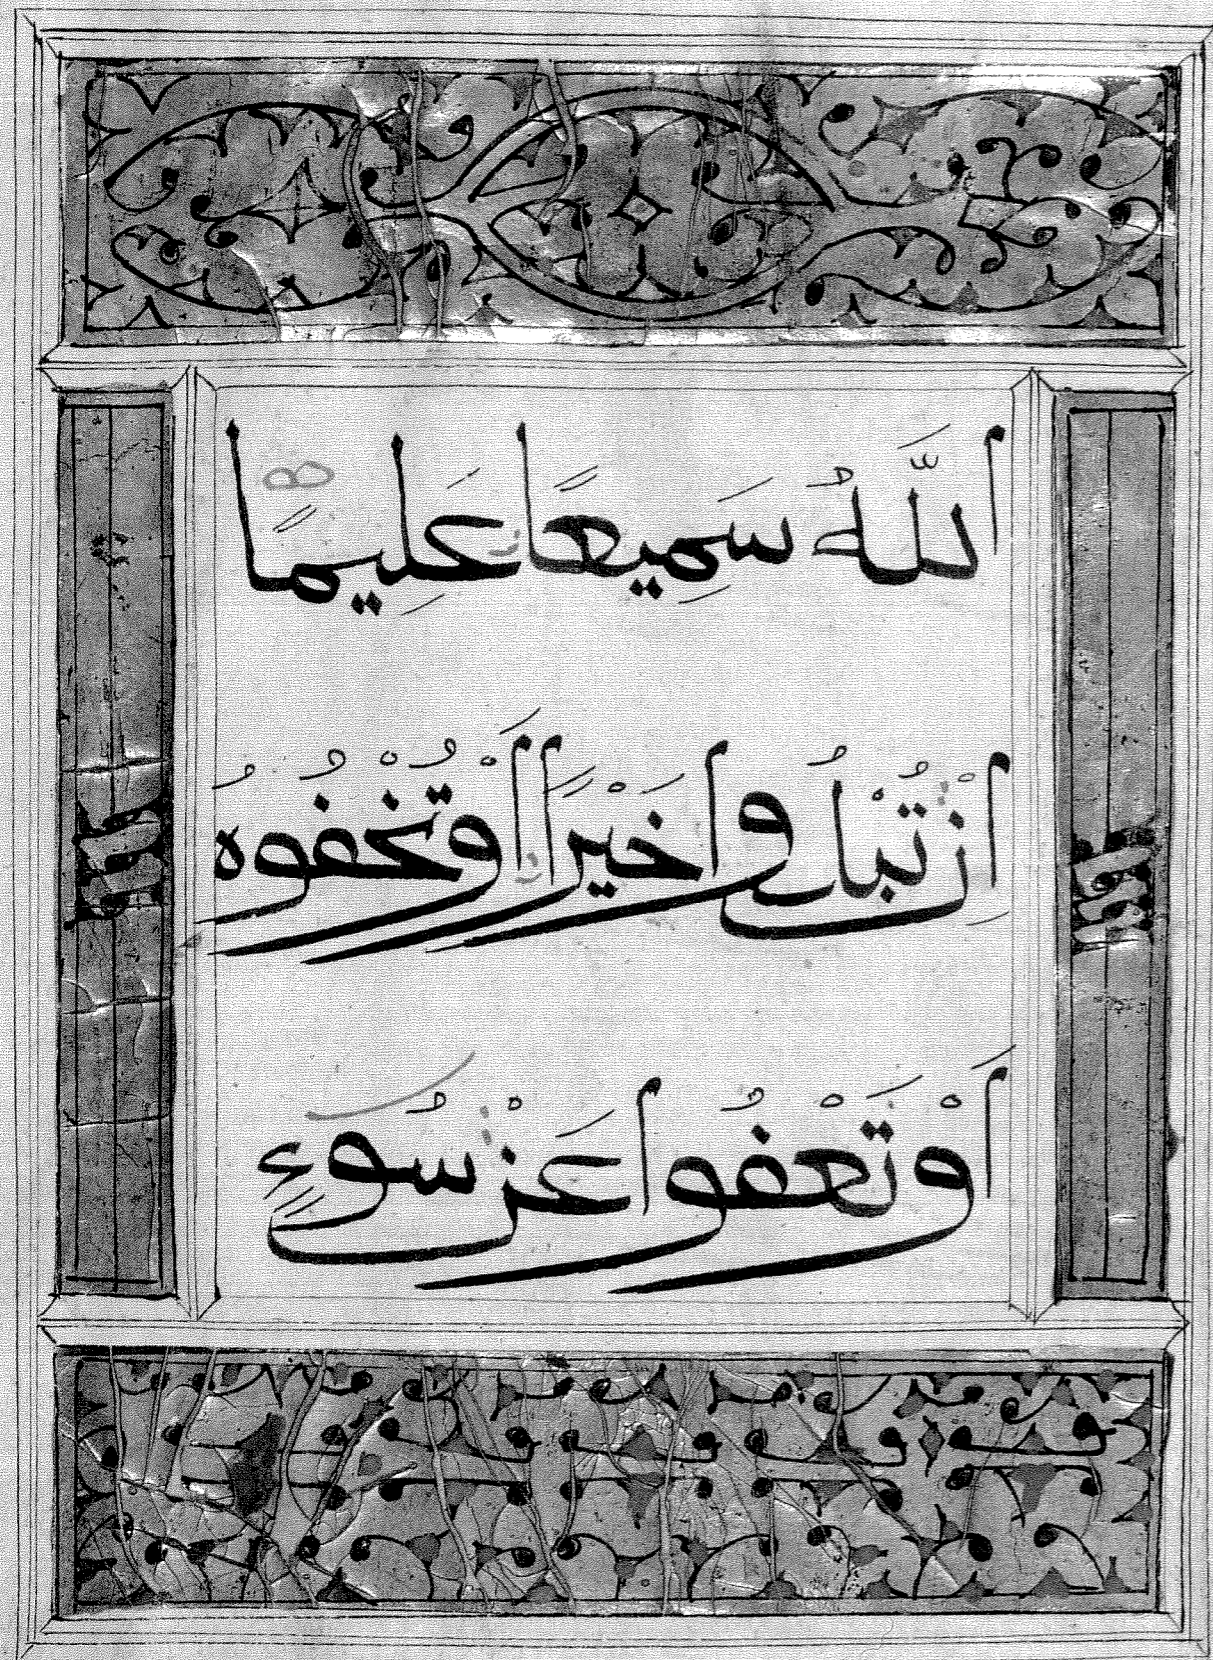 اَللَّهُ سَمِيعًا عَلِيمًا
اِنْ تُبْدُوا خَيْرًا اَوْ تُخْفُوهُ
اَوْ تَعْفُوا عَنْ سُوٓءٍ